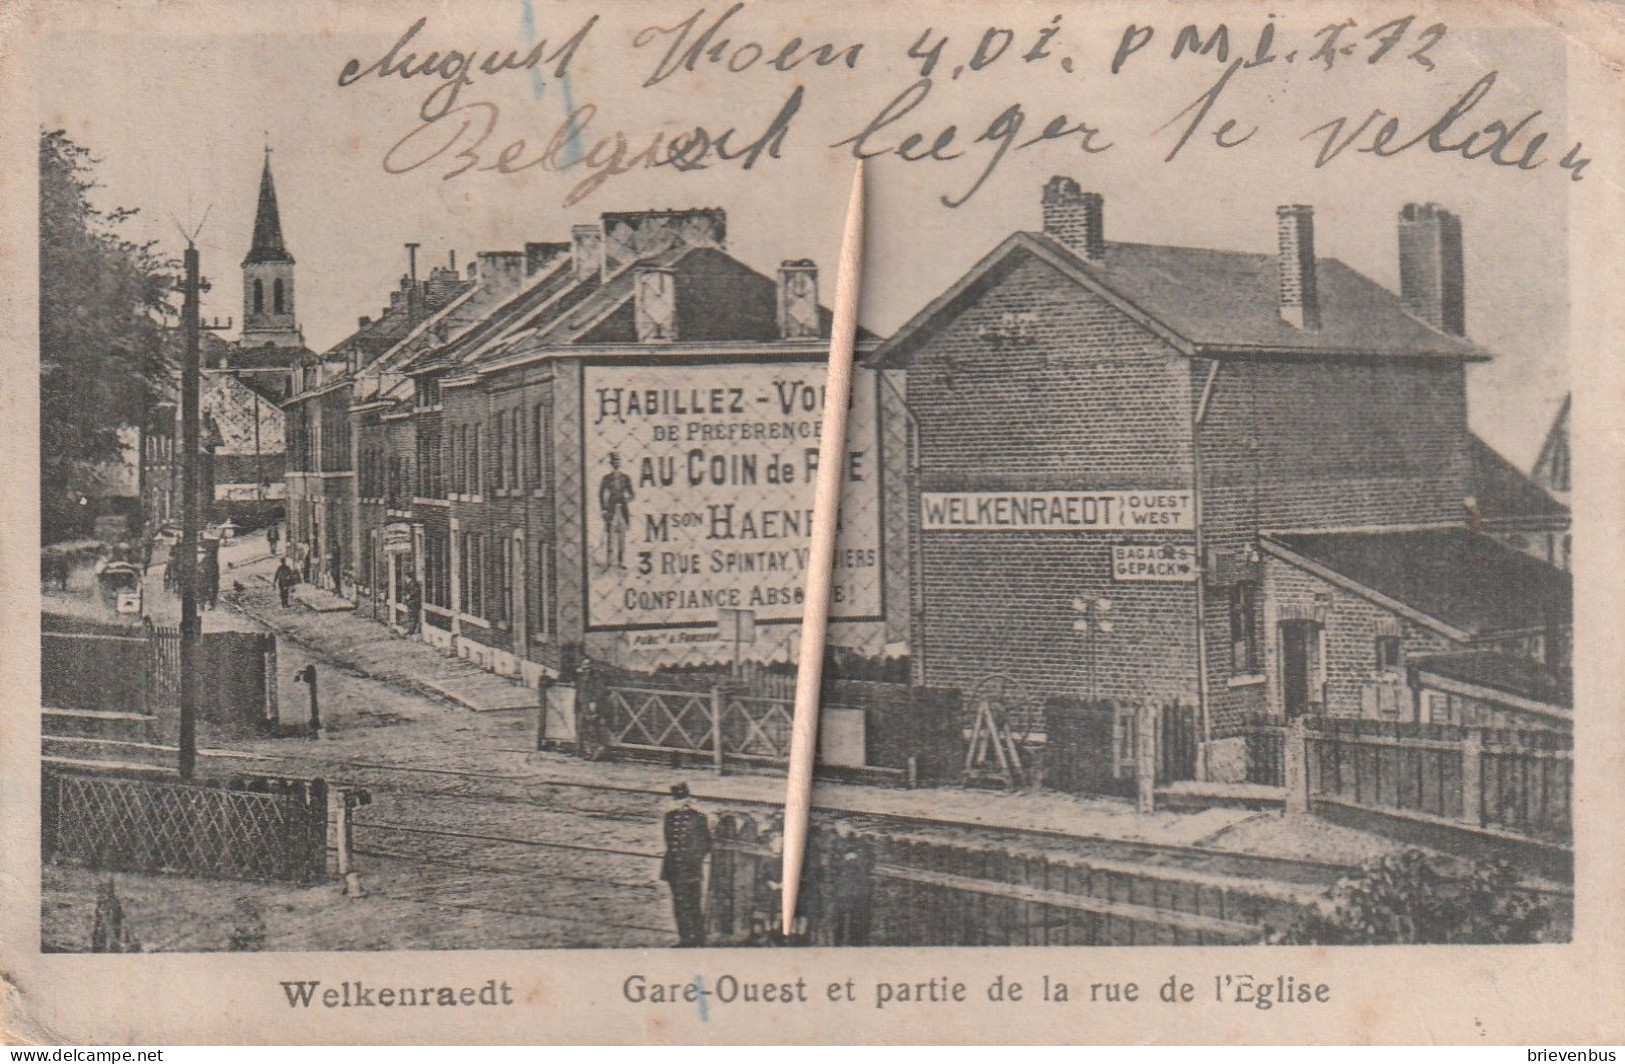 August Vroen 4.Di. PMI.I-72
Belgisch leeger te velden
HABILLEZ-VOUS
DE PRÉFÉRENCE
AU COIN de RUE
MSON HAENEN
3 RUE SPINTAY. VERVIERS
CONFIANCE ABSOLUE!
WELKENRAEDT OUEST
WEST
BAGAGES
GEPACK
Welkenraedt Gare-Ouest et partie de la rue de l'Eglise
delcampe.net
brievenbus